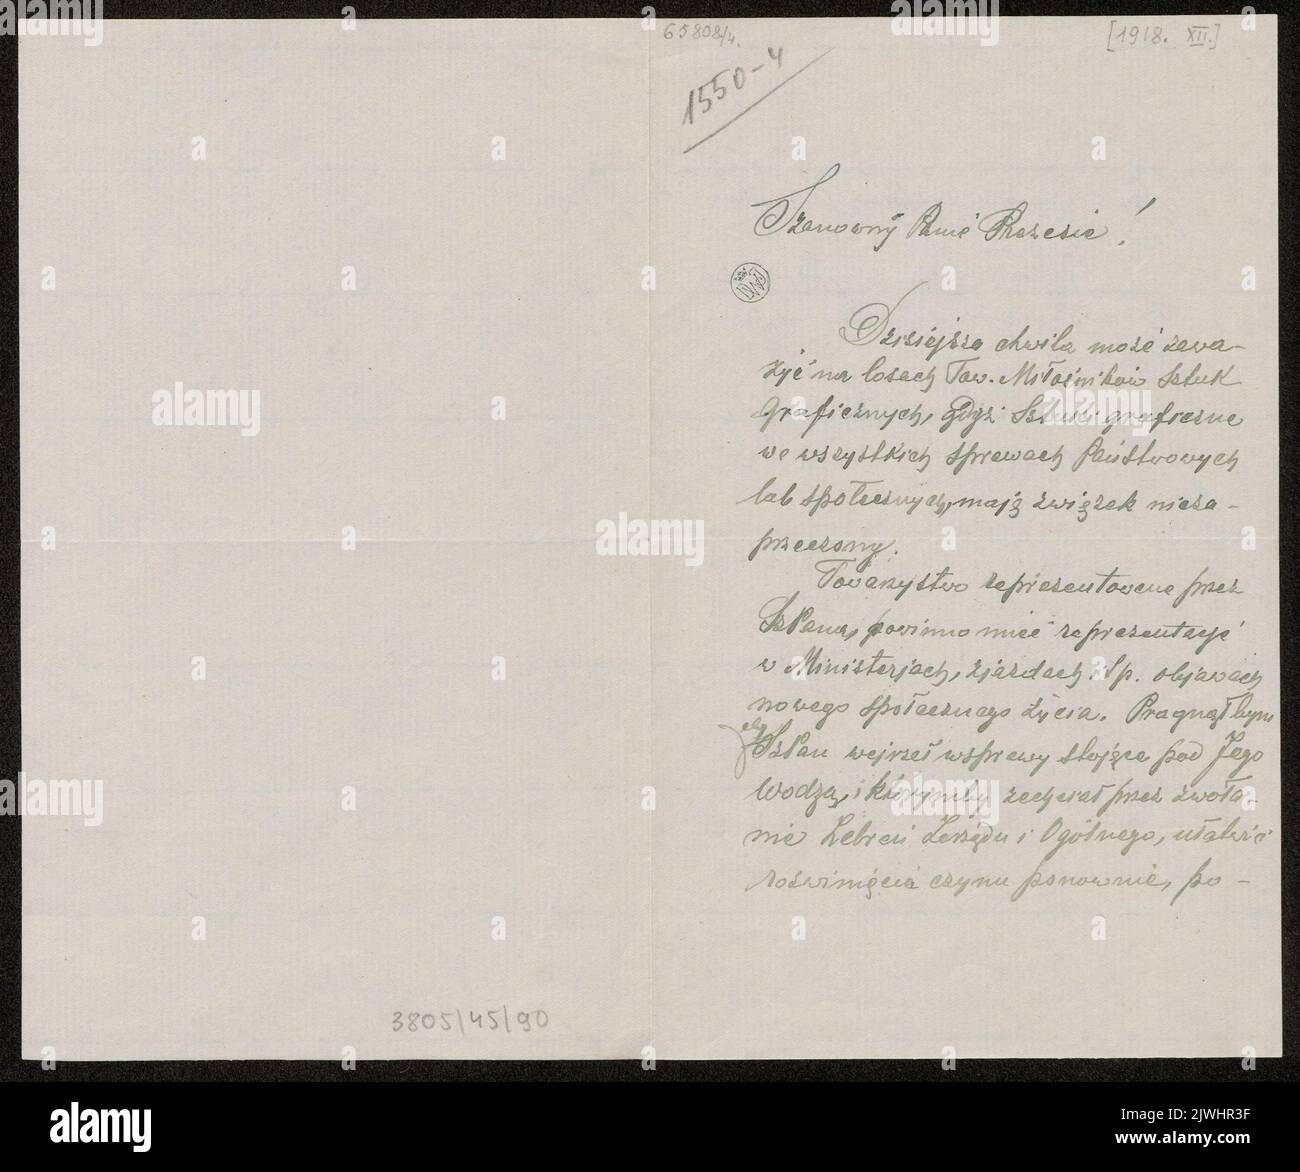 65808/4.
[1918. XII.]
1550-4
Szanowny Panie Prezesie!
Dzisiejsza chwila może zawa-
żyć na losach Tow. Miłośników Sztuk
Graficznych, gdyż Sztuki graficzne
we wszystkich sprawach Państwowych
lub społecznych, mają związek nieza-
przeczony.
Towarzystwo reprezentowane przez
SzPana, powinno mieć reprezentacje
w Ministerjach, zjazdach i t p. objawach
nowego społecznego życia. Pragnąłbym
by SzPan wejrzał w sprawy stojące pod Jego
Wodzą, i który by zechciał przez zwoła-
nie Zebrań Zarządu i Ogólnego, ułatwić
rozwinięcia czynu ponownie, po-
3805/45/90
alamy
Image ID: 2JWHR3F
www.alamy.com